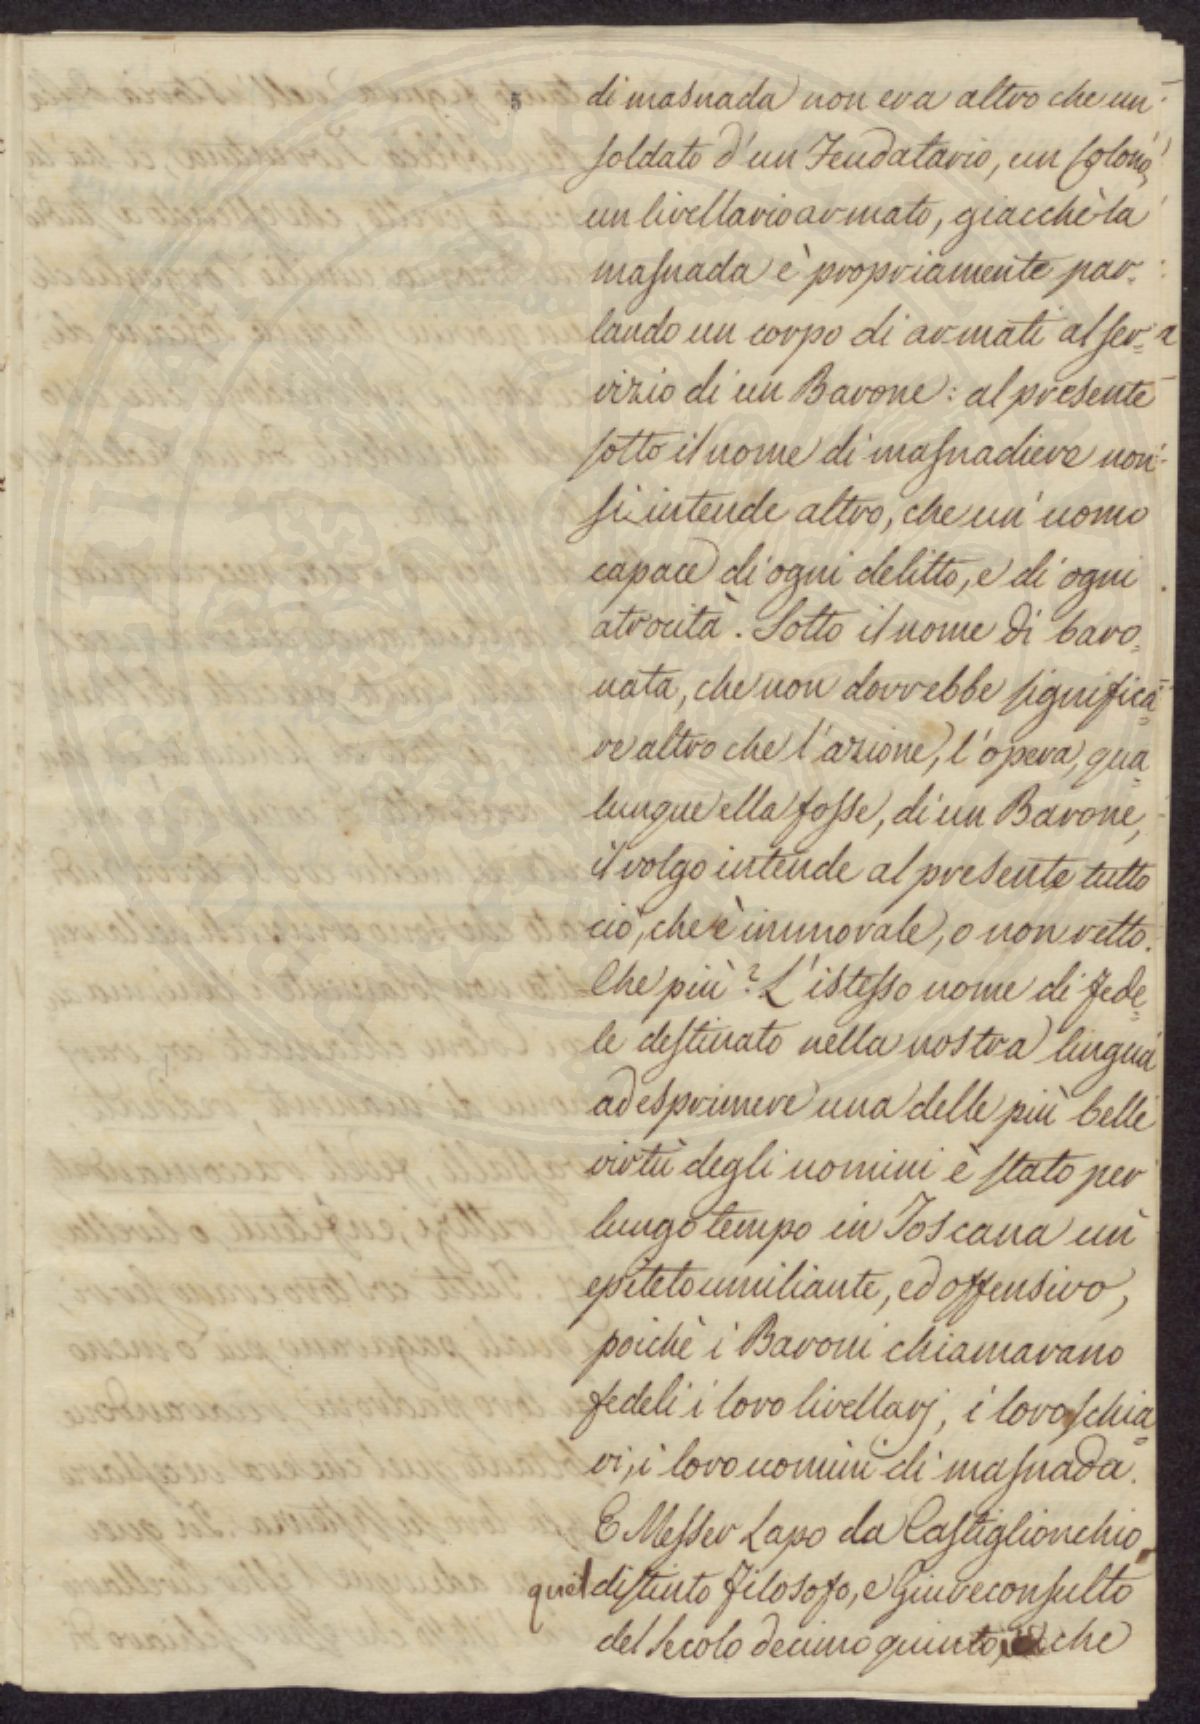 di masnada non era altro che un
soldato d'un Feudatario, un Colono,
un livellario armato, giacchè la
masnada è propriamente par-
lando un corpo di armati al ser-
vizio di un Barone: al presente
sotto il nome di masnadiere non
si intende altro, che un' uomo
capace di ogni delitto, e di ogni
atrocità. Sotto il nome di baro-
nata, che non dovrebbe significa-
re altro che l'azione, l'opera, qua-
lunque ella fosse, di un Barone,
il volgo intende al presente tutto
ciò, che è immorale, o non retto.
Che più? L'istesso nome di fede-
le destinato nella nostra lingua
ad esprimere una delle più belle
virtù degli uomini è stato per
lungo tempo in Toscana un
epiteto umiliante, ed offensivo,
poichè i Baroni chiamavano
fedeli i loro livellarj, i loro schia-
vi, i loro uomini di masnada.
E Messer Lapo da Castiglionchio
quel distinto filosofo, e Giureconsulto
del secolo decimo quinto, che